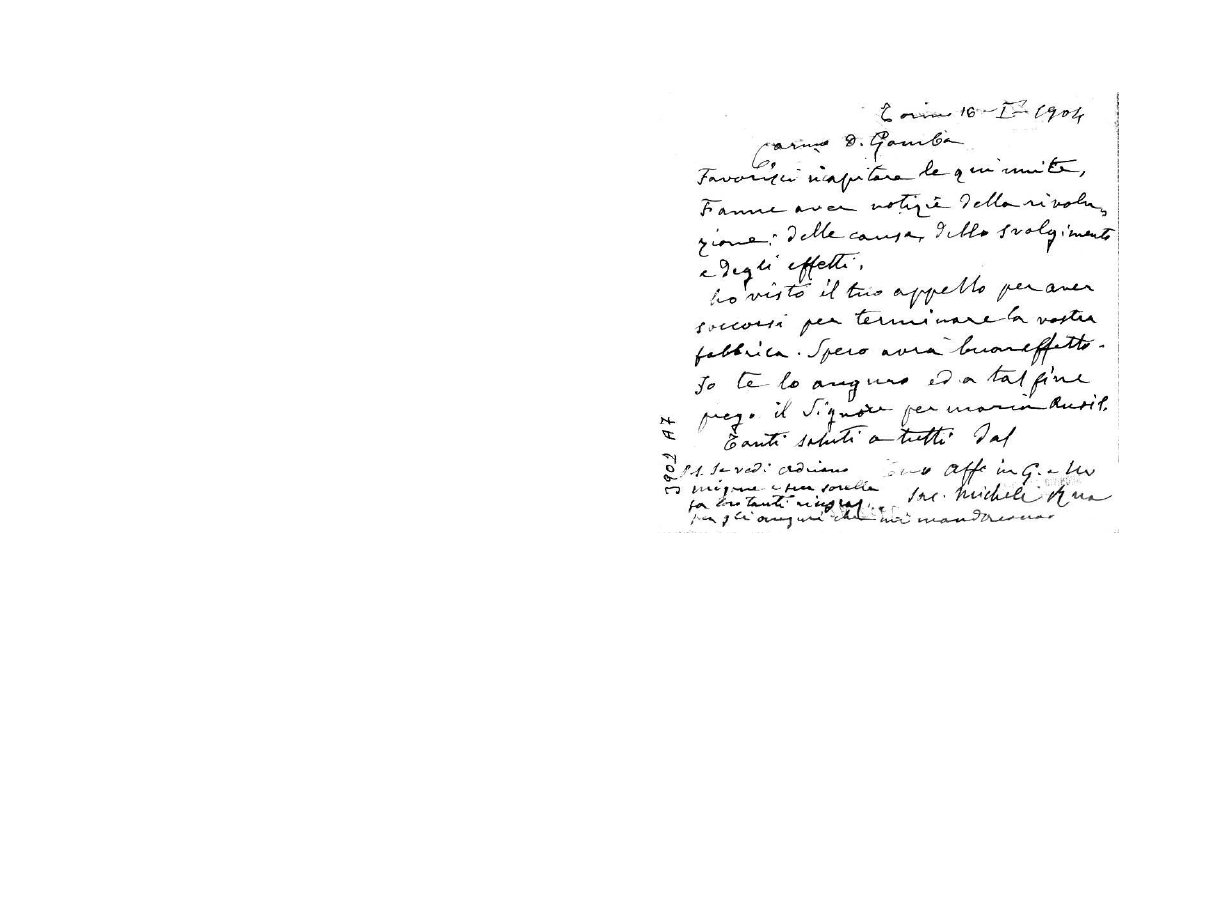 Torino 16 - I - 1904
Carmo D. Gamba
Favorisci ricapitare le qui unite,
Fanne aver notizie della rivolu-
zione: delle cause, dello svolgimento
e degli effetti.
Ho visto il tuo appello per aver
soccorsi per terminare la vostra
fabbrica. Spero avrà buon effetto.
Io te lo auguro ed a tal fine
prego il Signore per Maria Ausil.
Tanti saluti a tutti dal
Tuo Aff. in G. e M
Sac. Michele Rua
P.S. Se vedi Adriano
e sua sorella
fa loro tanti ringraz.
per gli auguri che mi mandarono
3902 A7